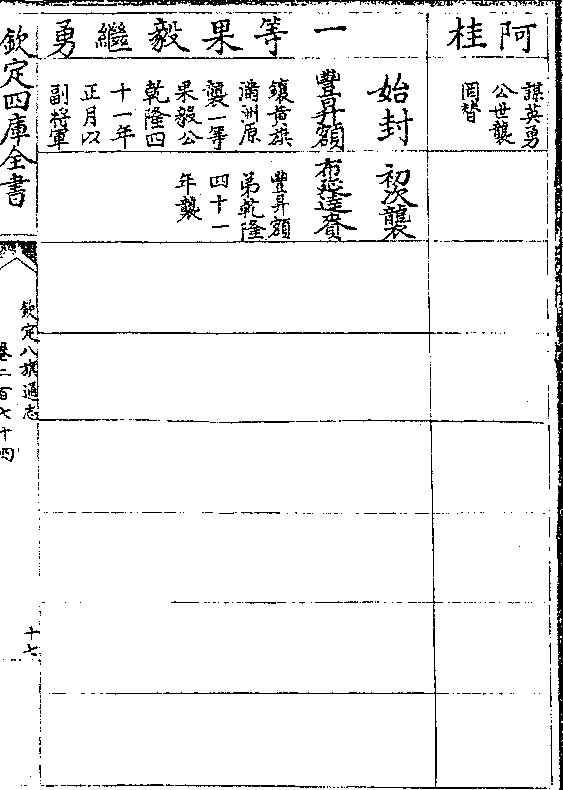 阿桂
謀英勇
公世襲
罔替
一等果毅繼勇
始封
豐昇額
鑲黃旗
滿洲原
襲一等
果毅公
乾隆四
十一年
正月以
副將軍
初次襲
布延達賚
豐昇額
弟乾隆
四十一
年襲
欽定四庫全書
欽定八旗通志
卷二百七十四
十七